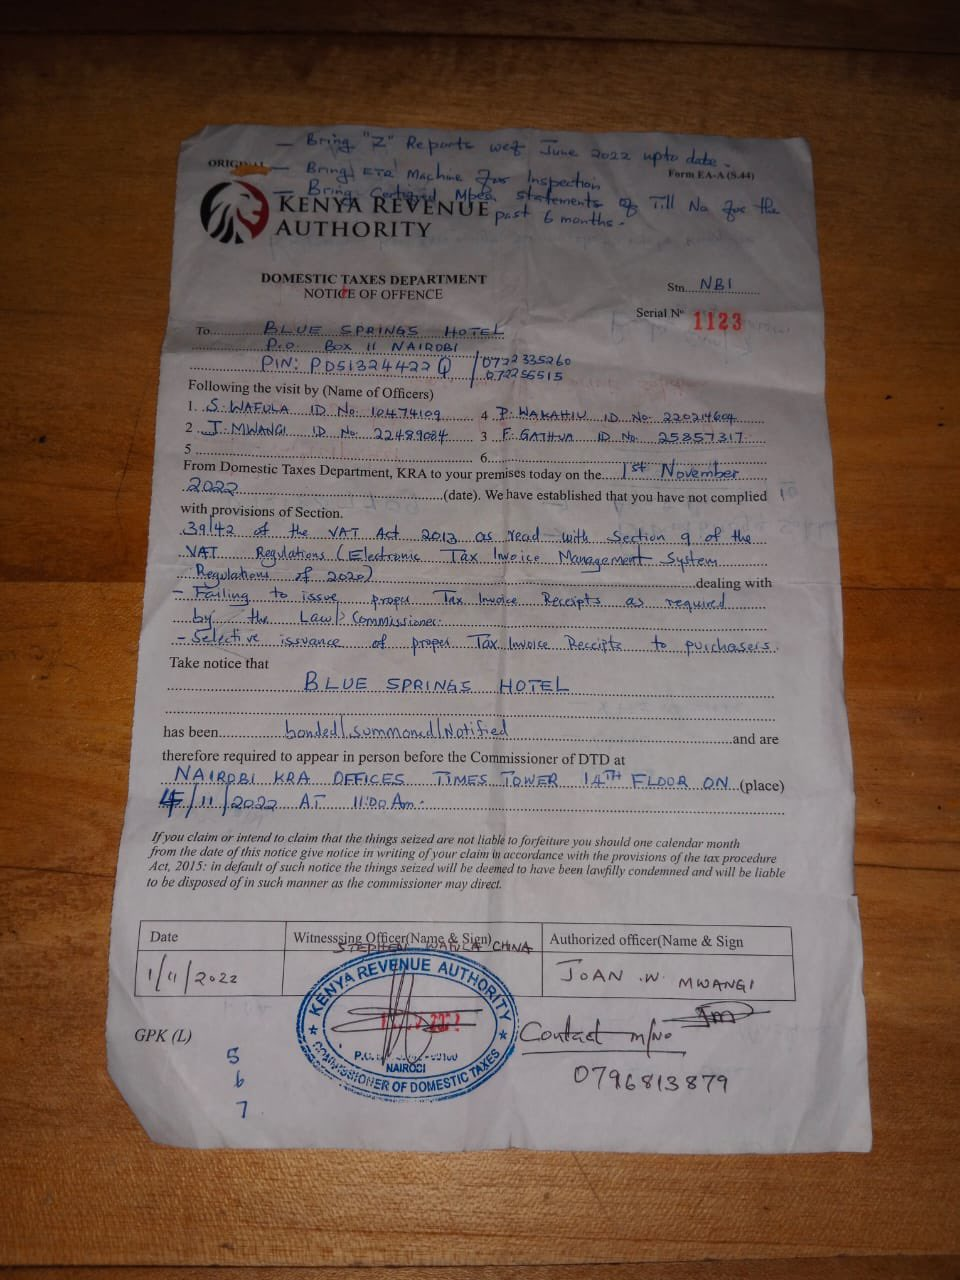 - Bring "Z" Reports wef June 2022 upto date.
ORIGINAL
- Bring ETR Machine for Inspection
Form EA-A (S.44)
- Bring Certified Mpesa statements of Till No for the past 6 months.
KENYA REVENUE
AUTHORITY
DOMESTIC TAXES DEPARTMENT
NOTICE OF OFFENCE
Stn NBI
Serial Nº 1123
To BLUE SPRINGS HOTEL
P.O. Box 11 NAIROBI
PIN: P051324422Q / 0722335260
072256515
Following the visit by (Name of Officers)
1. S. WAFULA ID No. 10474109 4 P. WAKAHIU ID No. 220214604
2 J. MWANGI ID No. 22489084 3 F. GATHUA ID No. 25357317
5 6
From Domestic Taxes Department, KRA to your premises today on the 1st November
2022 (date). We have established that you have not complied
with provisions of Section.
39/42 of the VAT Act 2013 as read with Section 9 of the
VAT Regulations (Electronic Tax Invoice Management System
Regulations of 2020) dealing with
- Failing to issue proper Tax Invoice Receipts as required
by the Law/Commissioner.
- Selective issuance of proper Tax Invoice Receipts to purchasers.
Take notice that
BLUE SPRINGS HOTEL
has been bonded/summoned/Notified and are
therefore required to appear in person before the Commissioner of DTD at
NAIROBI KRA OFFICES TIMES TOWER 14TH FLOOR ON (place)
4/11/2022 AT 11:00 Am.
If you claim or intend to claim that the things seized are not liable to forfeiture you should one calendar month
from the date of this notice give notice in writing of your claim in accordance with the provisions of the tax procedure
Act, 2015: in default of such notice the things seized will be deemed to have been lawfilly condemned and will be liable
to be disposed of in such manner as the commissioner may direct.
Date Witnesssing Officer(Name & Sign) Authorized officer(Name & Sign
STEPHEN WAFULA CHINA
1/11/2022 JOAN W. MWANGI
KENYA REVENUE AUTHORITY
NAIROBI
COMMISSIONER OF DOMESTIC TAXES
GPK (L)
Contact m/No
0796813879
5
6
7